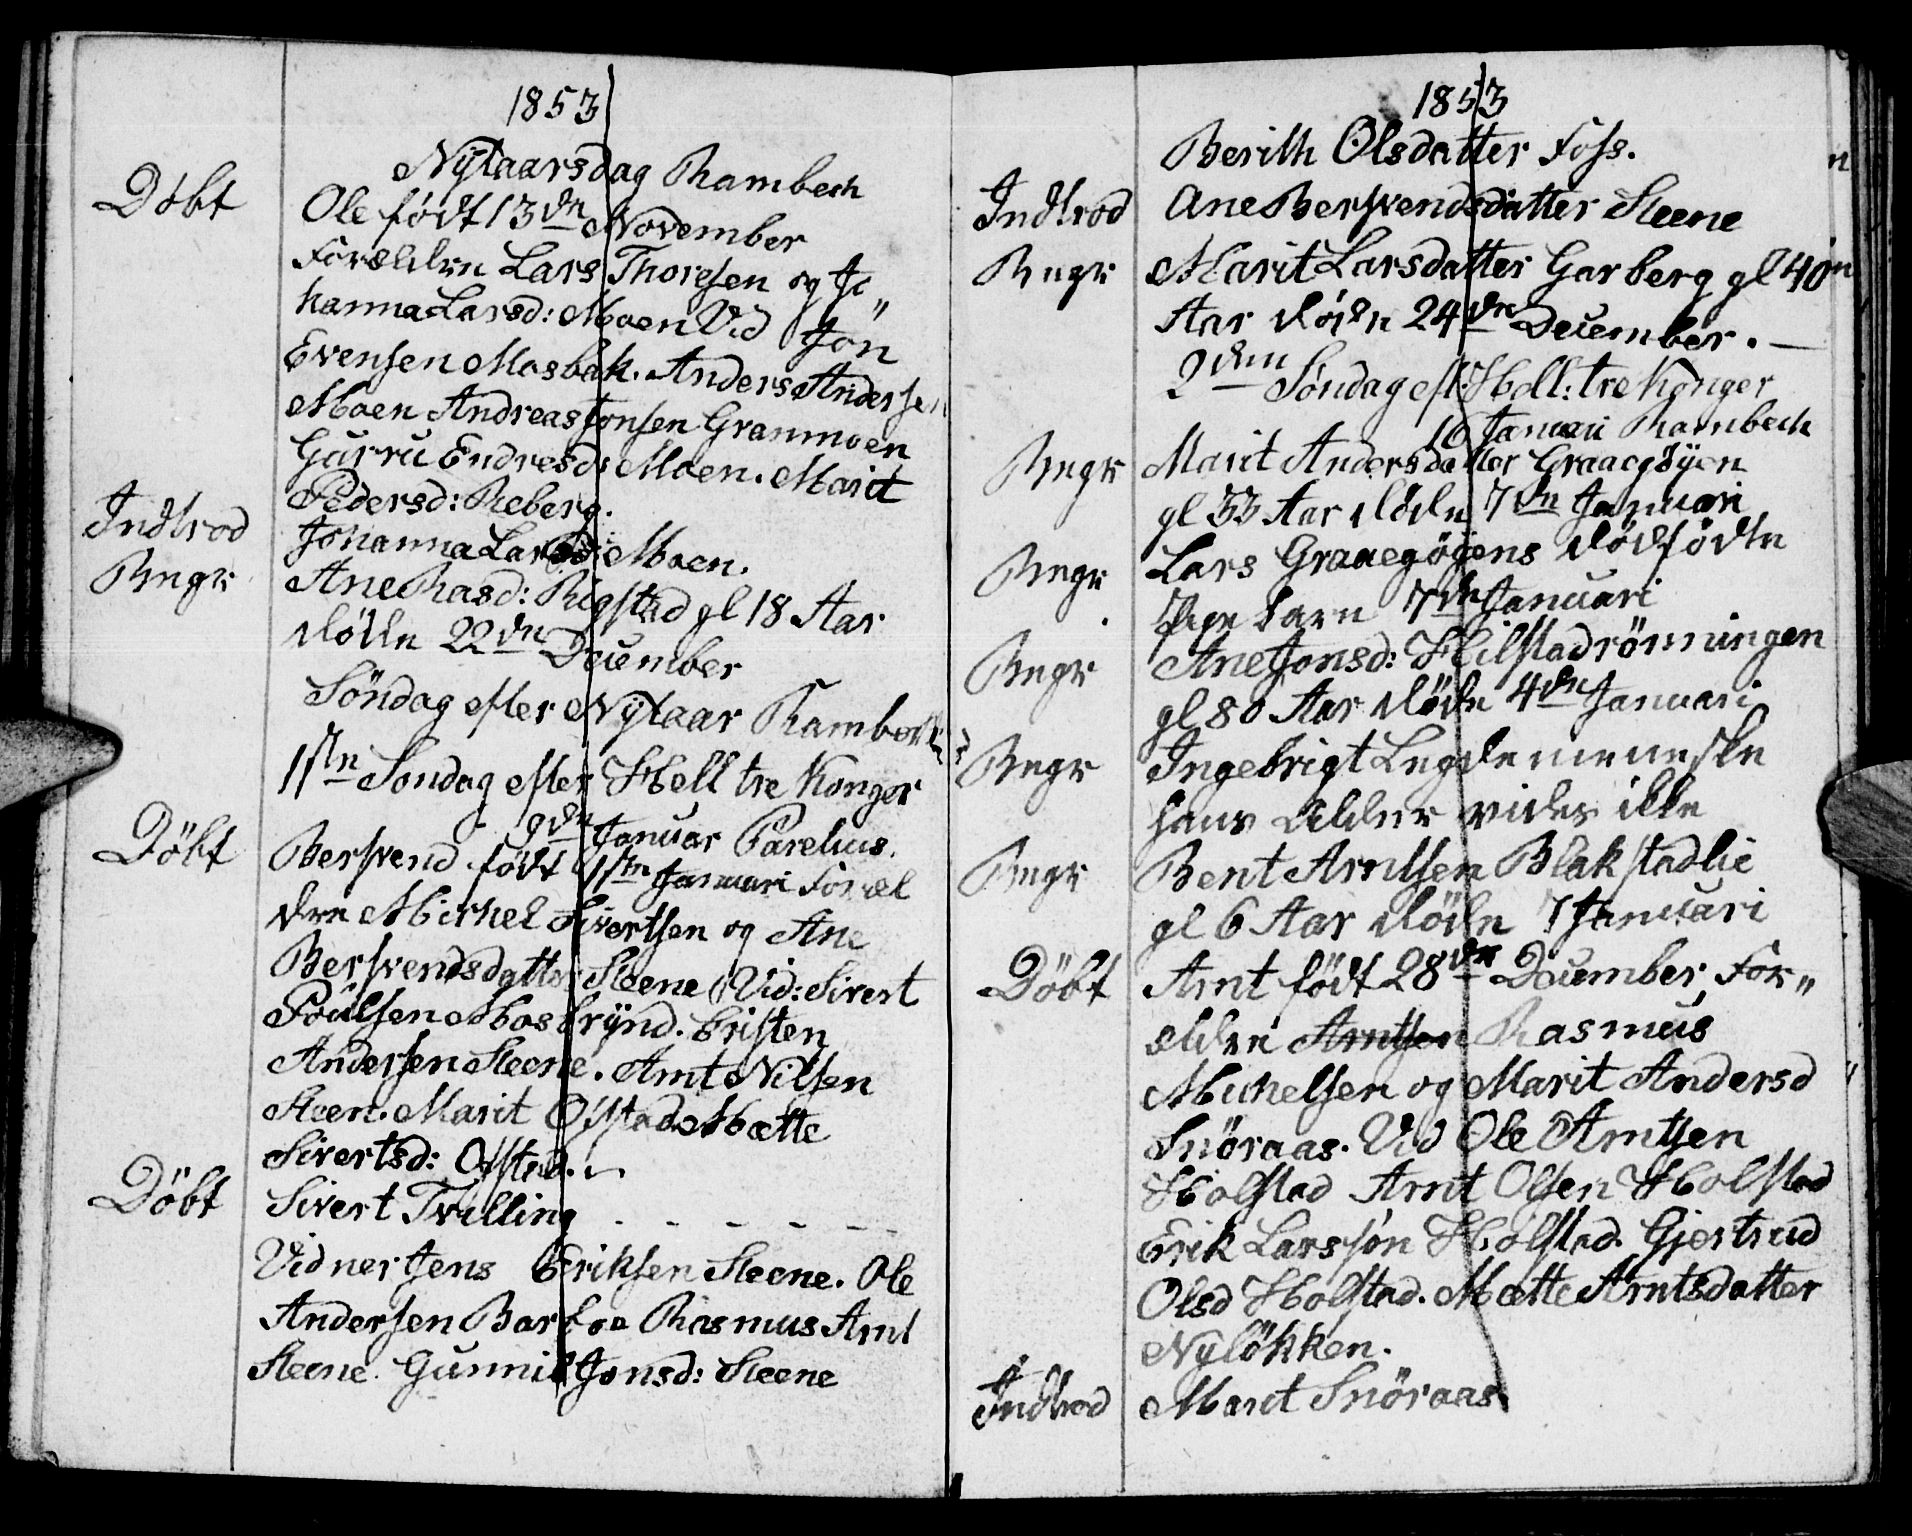 1853
Nÿtaarsdag Rambech
Döbt
Ole födt 13de November
Forældre Lars Thoresen og Jo„
hanna Larsd: Moen Vid Jon
Evensen Mosbak. Anders Andersen
Moen Andreas Jonsen Granmoen
Gurru Endresd: Moen. Marit
Pedersd: Reberg.
Indtrod Johanna Larsd: Moen.
Begr Ane Rasd: Rigstad gl 18 Aar
döde 22de December
Söndag efter Nÿtaar Rambech
1ste Söndag efter Hell tre Konger
9de Januar Parelius.
Döbt Bersvend födt 1ste Januari Foræl
dre Mickel Sivertsen og Ane
Bersvendsdatter Steene Vid: Sivert
Poulsen Mosbrÿnd. Cristen
Andersen Steene. Arnt Nilsen
Steen. Marit Ofstad. Mette
Sivertsd: Ofstad.
Döbt Sivert Tvilling - - - - - -
Vidner Jens Eriksen Steene. Ole
Andersen Barloa Rasmus Arnt
Steene. Gunnil Jonsd: Steene
1853
Berith Olsdatter Foss.
Indtrod Ane Bersvendsdatter Steene
Begr Marit Larsdatter Garberg gl 40
Aar döde 24de December. —
2den Söndag eft: Hell: tre Konger
16 Januari Rambech
Begr Marit Andersdatter Graaegöyen
gl 33 Aar döde 7de Januari
Begr Lars Graaegöyens dödfödte
Pige barn 7de Januari
Begr Ane Jonsd: Hilstadrönningen
gl 80 Aar döde 4de Januari
Begr Ingebrigt Legdemenneske
hans Alder vides ikke
Begr Bent Arntsen Blakstadlie
gl 6 Aar döde 7 Januari
Döbt Arnt födt 28de December For„
ældre Arntsen Rasmus
Mickelsen og Marit Andersd
Snöraas. Vid Ole Arntsen
Holstad Arnt Olsen Holstad
Erik Larssön Holstad. Gjertrud
Olsd Holstad. Mette Arntsdatter
Nylökken.
Indtrod Marit Snöraas